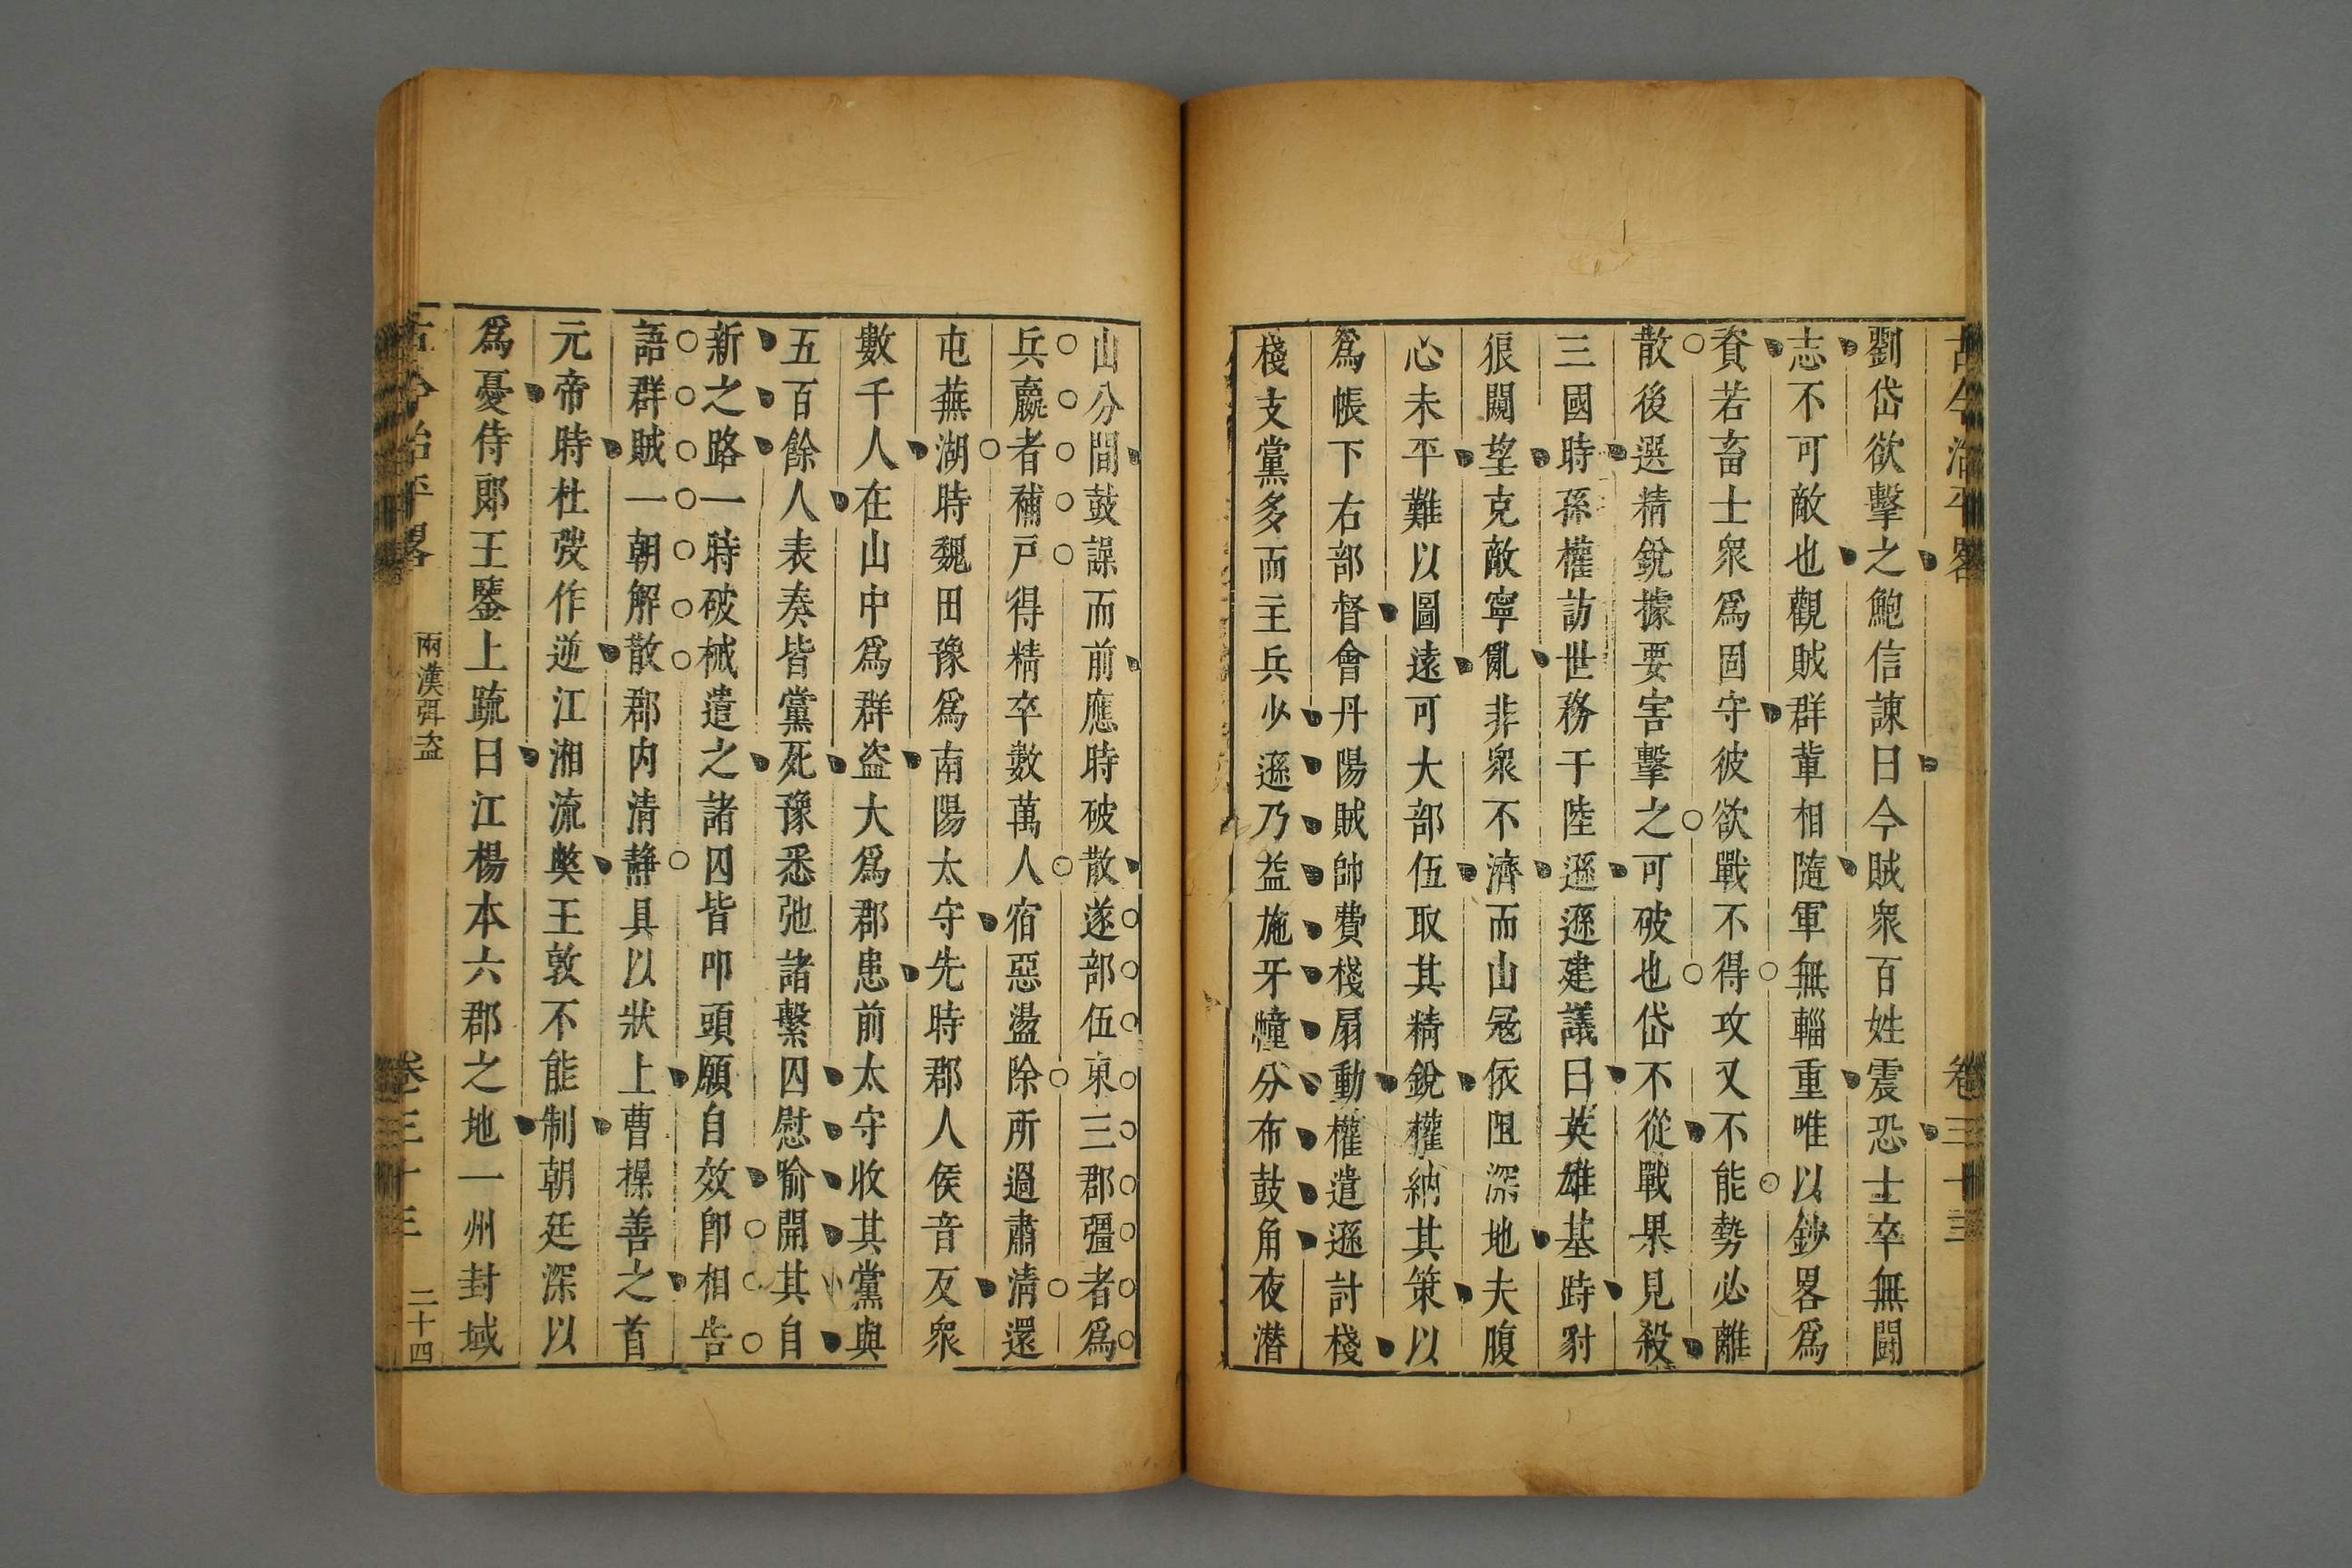 古今治平畧 卷三十三
劉岱欲擊之鮑信諫曰今賊衆百姓震恐士卒無鬪
志不可敵也觀賊群軰相隨軍無輜重唯以鈔畧爲
資若畜士衆爲固守彼欲戰不得攻又不能勢必離
散後選精銳據要害擊之可破也岱不從戰果見殺
三國時孫權訪世務于陸遜遜建議曰英雄基跱豺
狼闚望克敵寧亂非衆不濟而山冦依阻深地夫腹
心未平難以圖遠可大部伍取其精銳權納其策以
爲帳下右部督會丹陽賊帥費棧扇動權遣遜計棧
棧支黨多而主兵少遜乃益施牙幢分布鼓角夜潜
山分間鼓譟而前應時破散遂部伍東三郡彊者爲
兵羸者補戸得精卒數萬人宿惡盪除所過肅清還
屯蕪湖時魏田豫爲南陽太守先時郡人侯音反衆
數千人在山中爲群盗大爲郡患前太守收其黨與
五百餘人表奏皆黨死豫悉弛諸繫囚慰喻開其自
新之路一時破械遣之諸囚皆叩頭願自效卽相告
語群賊一朝解散郡内清静具以狀上曹操善之首
元帝時杜弢作逆江湘流獘王敦不能制朝廷深以
爲憂侍郎王鑒上疏曰江楊本六郡之地一州封域
古今治平畧 兩漢弭盗 卷三十三 二十四